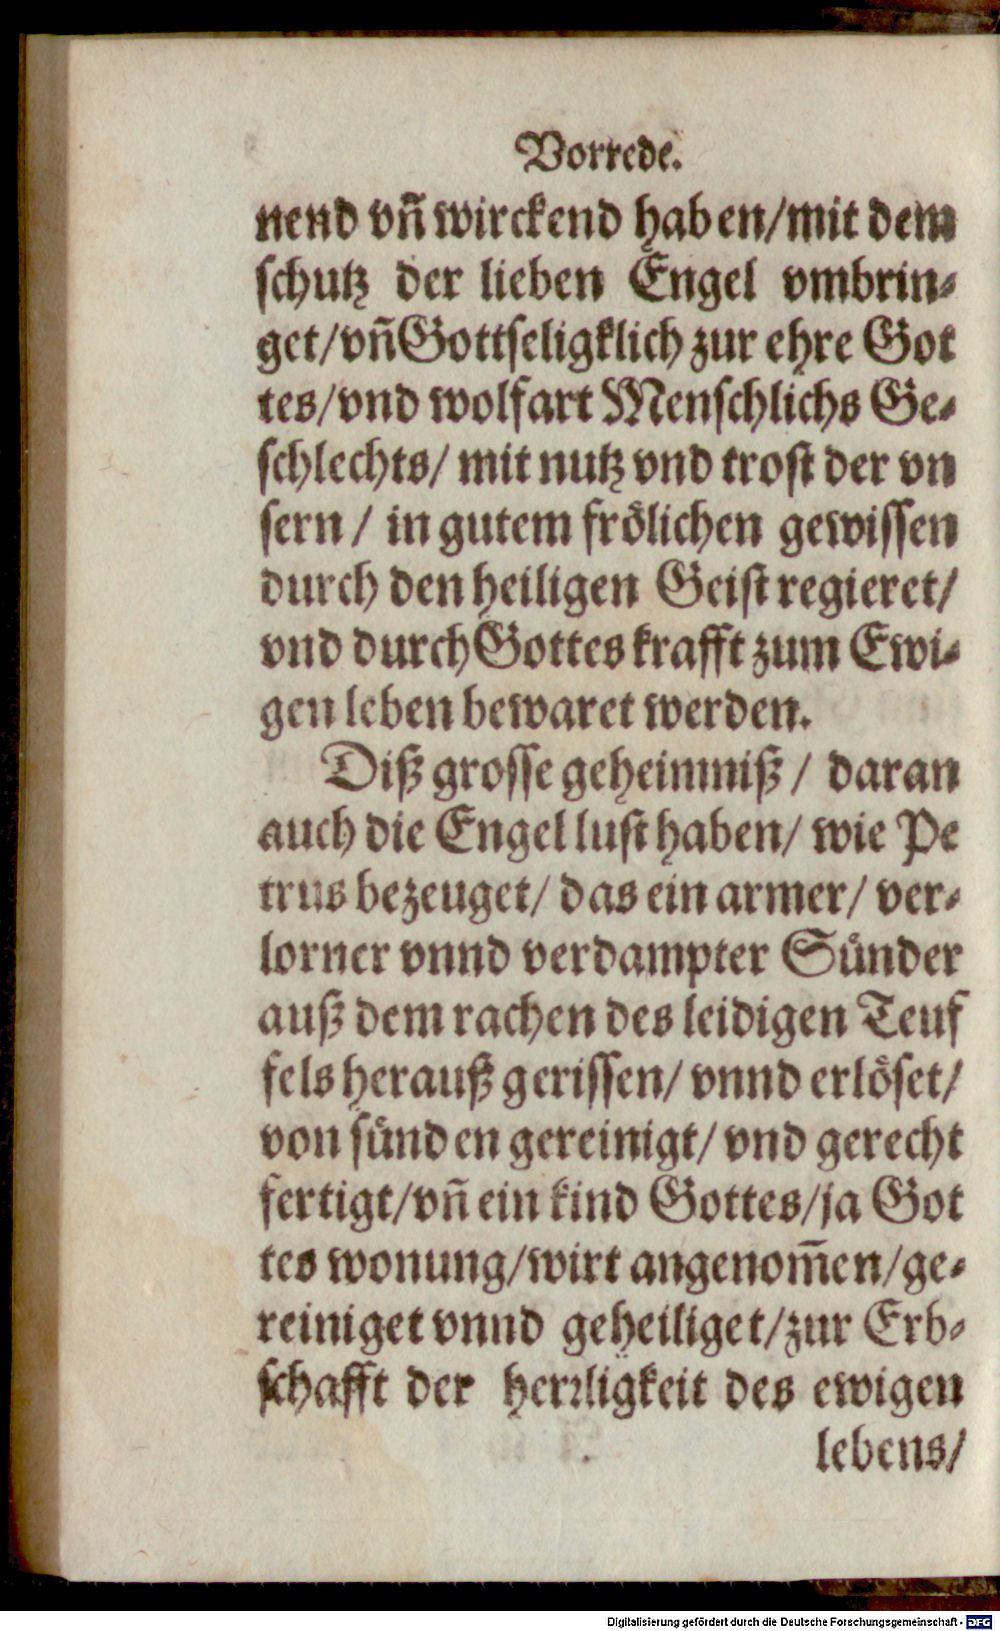 Vorrede.
nend vñ wirckend haben/mit dem
schutz der lieben Engel vmbrin-
get/vñ Gottseligklich zur ehre Got
tes/vnd wolfart Menschlichs Ge-
schlechts/ mit nutz vnd trost der vn
sern / in gutem frölichen gewissen
durch den heiligen Geist regieret/
vnd durch Gottes krafft zum Ewi-
gen leben bewaret werden.
Diß grosse geheimniß / daran
auch die Engel lust haben/ wie Pe
trus bezeuget/ das ein armer/ ver-
lorner vnnd verdampter Sünder
auß dem rachen des leidigen Teuf
fels herauß gerissen/ vnnd erlöset/
von sünden gereinigt/ vnd gerecht
fertigt/vñ ein kind Gottes/ja Got
tes wonung/wirt angenom̃en/ge-
reiniget vnnd geheiliget/zur Erb-
schafft der herꝛligkeit des ewigen
lebens/
Digitalisierung gefördert durch die Deutsche Forschungsgemeinschaft - DFG